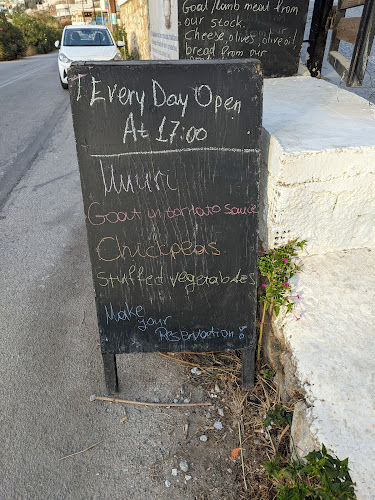 Goat/lamb meat from
our stock.
cheese, olives, olive oil
bread from our
Every Day Open
At 17:00
Goat in tomato sauce
Chickpeas
Stuffed vegetables
Make
your
Reservation!